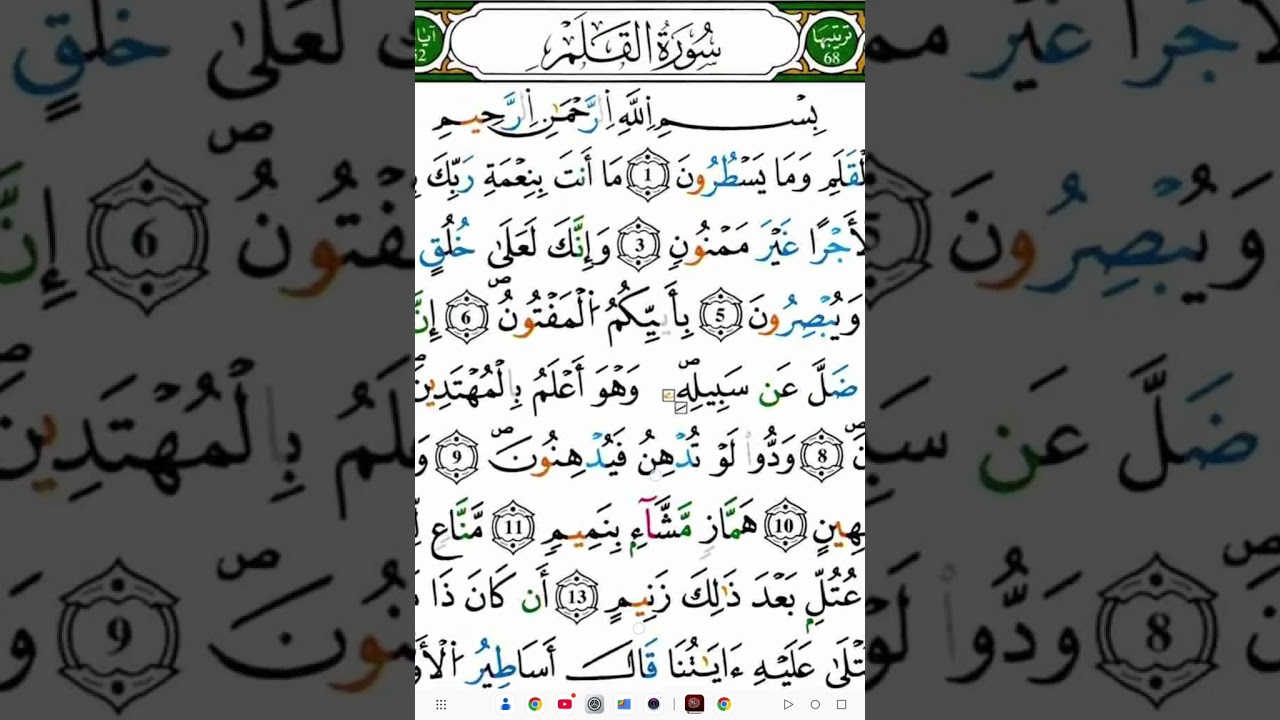 ترتيبها 68
سُورَةُ القَلَمْ
بِسْمِ اِللَّهِ اِلرَّحْمَٰنِ اِلرَّحِيمِ
وَمَا يَسْطُرُونَ 1 مَا أَنتَ بِنِعْمَةِ رَبِّكَ
لَأَجْرًا غَيْرَ مَمْنُونٍ 3 وَإِنَّكَ لَعَلَىٰ خُلُقٍ
وَيُبْصِرُونَ 5 بِأَييِّكُمُ اُلْمَفْتُونُ 6 إِنَّ
ضَلَّ عَن سَبِيلِهِ وَهْوَ أَعْلَمُ بِالْمُهْتَدِينَ
8 وَدُّوا لَوْ تُدْهِنُ فَيُدْهِنُونَ 9
10 هَمَّازٍ مَّشَّآءٍ بِنَمِيمٍ 11 مَّنَّاعٍ
عُتُلٍّ بَعْدَ ذَٰلِكَ زَنِيمٍ 13 أَن كَانَ ذَا
تُتْلَىٰ عَلَيْهِ ءَايَٰتُنَا قَالَ أَسَاطِيرُ